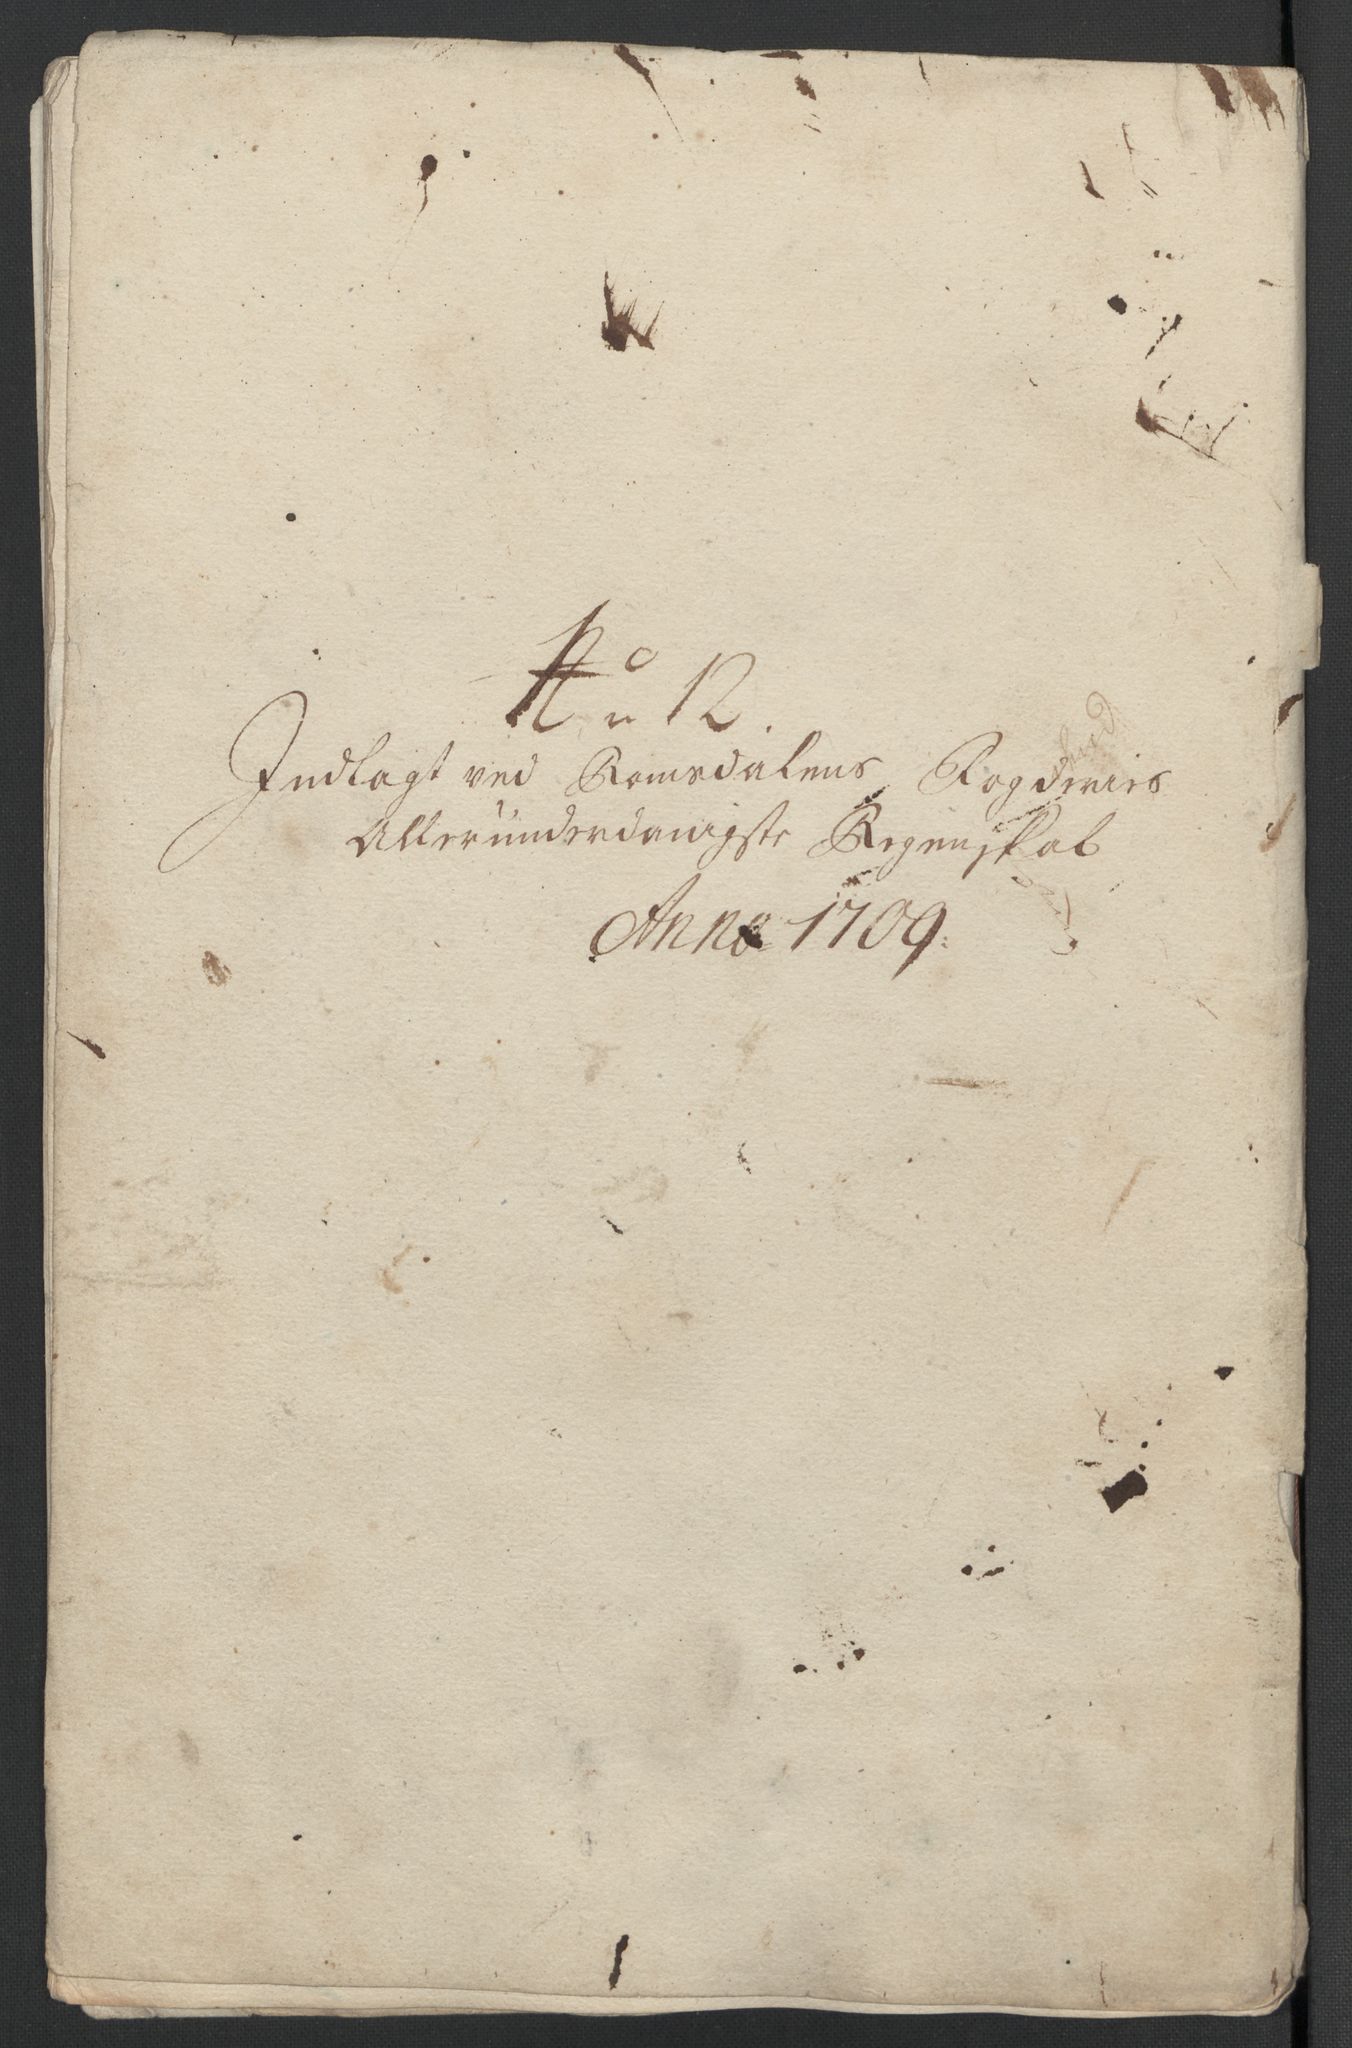 No 12.
Indlagt ved Romsdalens Fogderies
Alleründerdanigste Regenskab
Anno 1709.